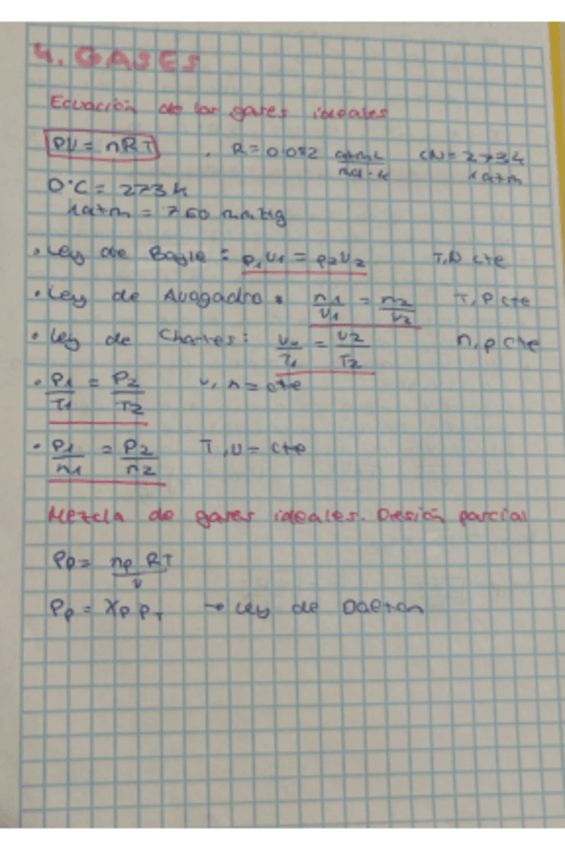 4. GASES
Ecuación de los gases ideales
PV = nRT . R = 0.082 atm·L / mol·K CN = 273 K
0°C = 273 K 1 atm
1 atm = 760 mmHg
• Ley de Boyle : P1V1 = P2V2 T, n cte
• Ley de Avogadro : n1/V1 = n2/V2 T, P cte
• Ley de Charles : V1/T1 = V2/T2 n, p cte
• P1/T1 = P2/T2 V, n = cte
• P1/n1 = P2/n2 T, V = cte
Mezcla de gases ideales. Presión parcial
Pp = np RT / V
Pp = Xp PT → Ley de Dalton